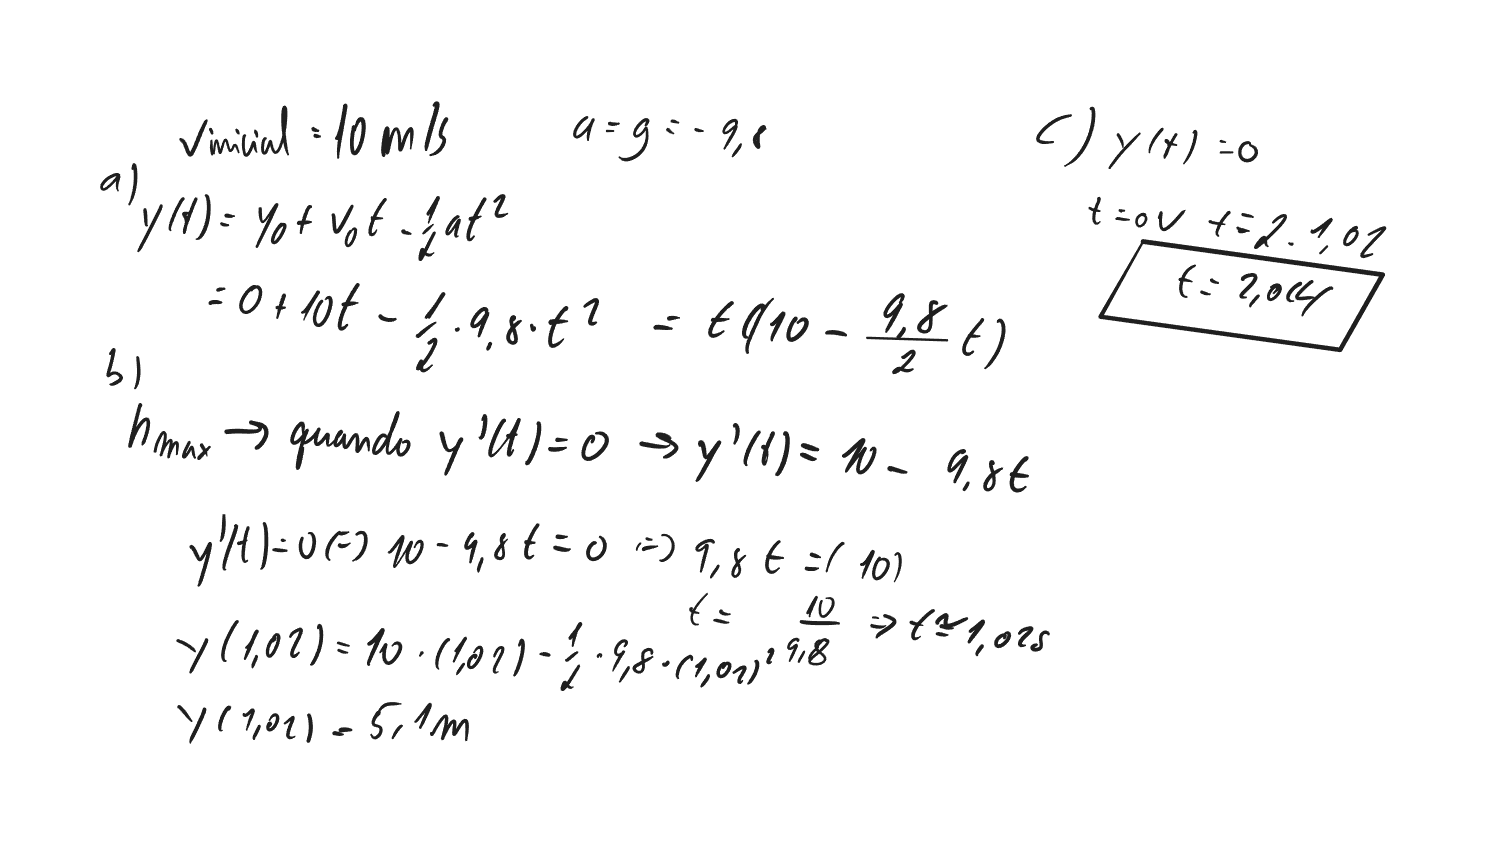 vinicial = 10 m/s a = g = - 9,8
a) y(t) = y₀ + v₀ t - 1/2 at²
= 0 + 10t - 1/2 . 9,8 . t² = t (10 - 9,8/2 t)
b)
hmax → quando y'(t) = 0 → y'(t) = 10 - 9,8t
y'(t) = 0 (=) 10 - 9,8 t = 0 (=) 9,8 t = ( 10)
t = 10/9,8 => t ≃ 1,02s
y(1,02) = 10 . (1,02) - 1/2 . 9,8 . (1,02)²
y(1,02) = 5,1m
c) y(t) = 0
t = 0 v t = 2 . 1,02
t = 2,04